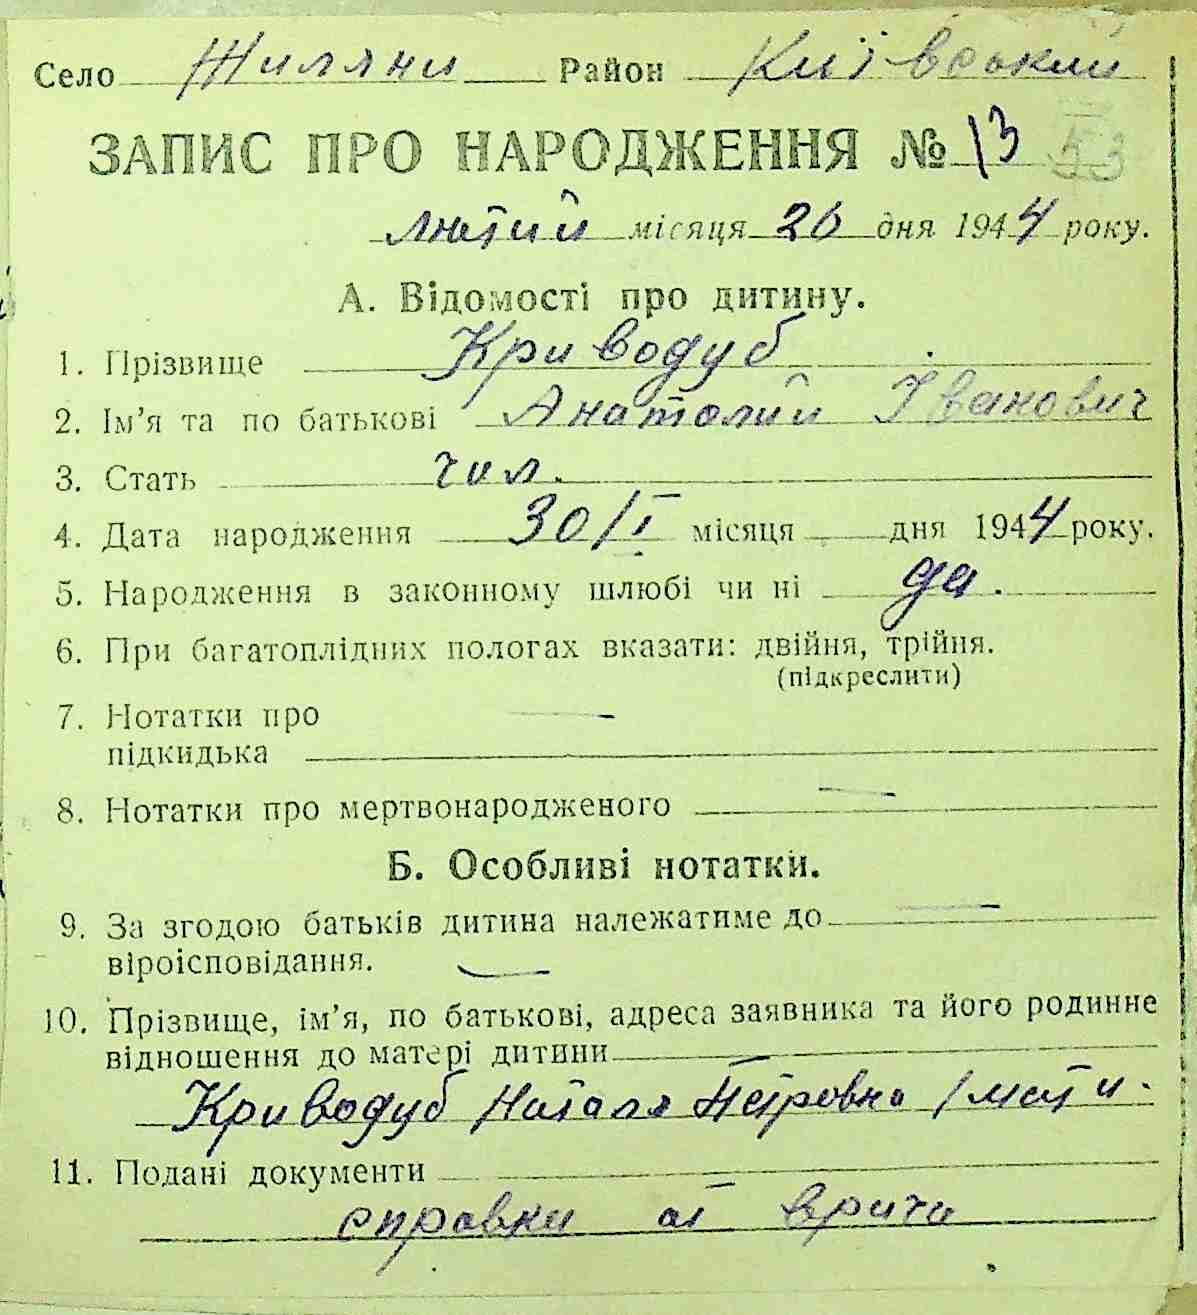 Село Жиляни Район Київський
ЗАПИС ПРО НАРОДЖЕННЯ № 13 53
лютий місяця 26 дня 1944 року.
А. Відомості про дитину.
1. Прізвище Криводуб
2. Ім’я та по батькові Анатолий Іванович
3. Стать чол.
4. Дата народження 30/I місяця дня 1944 року.
5. Народження в законному шлюбі чи ні да.
6. При багатоплідних пологах вказати: двійня, трійня.
(підкреслити)
7. Нотатки про —
підкидька
8. Нотатки про мертвонародженого —
Б. Особливі нотатки.
9. За згодою батьків дитина належатиме до —
віроісповідання. —
10. Прізвище, ім’я, по батькові, адреса заявника та його родинне
відношення до матері дитини
Криводуб Наталя Петровна / мати.
11. Подані документи
справки от врача